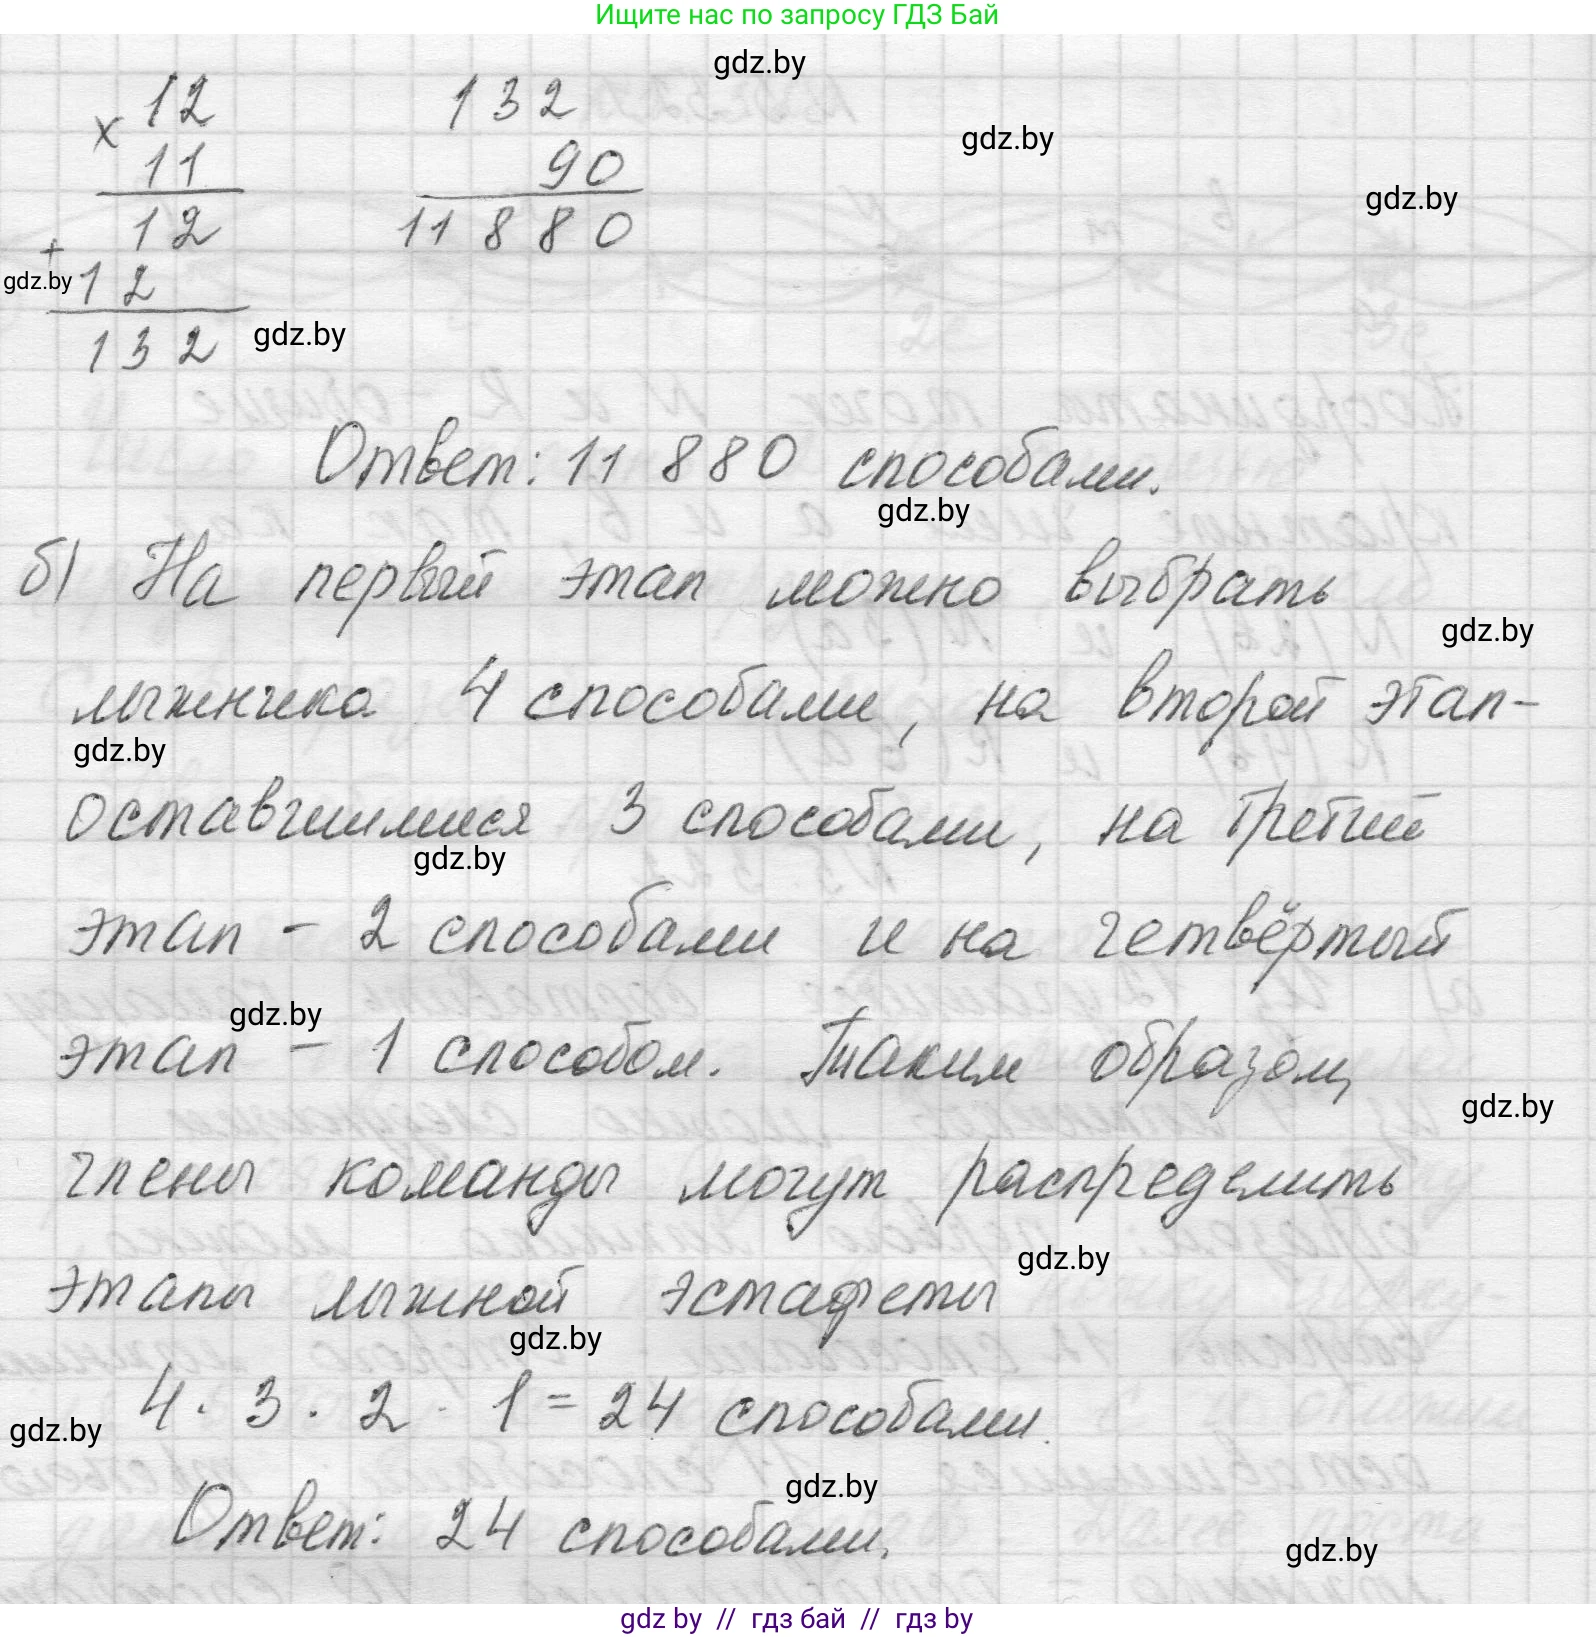 Ищите нас по запросу ГДЗ Бай
gdz.by
12 132
× gdz.by
11 90
gdz.by
12 11 880
+
gdz.by 12
132 gdz.by
Ответ: 11 880 способами.
gdz.by
б) На первый этап можно выбрать
gdz.by
лыжника 4 способами, на второй этап-
gdz.by
оставшимися 3 способами, на третий
gdz.by
этап - 2 способами и на четвёртый
gdz.by
этап - 1 способом. Таким образом,
gdz.by
члены команды могут распределить
gdz.by
этапы лыжной эстафеты
gdz.by
4 · 3 · 2 · 1 = 24 способами.
gdz.by
gdz.by
Ответ: 24 способами.
gdz.by
gdz by // гдз бай // гдз by